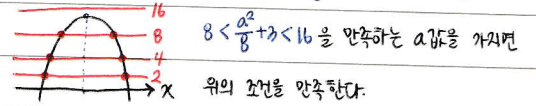 16
8
4
2
x
8 < a²/8 + 3 < 16 을 만족하는 a값을 가지면
위의 조건을 만족한다.